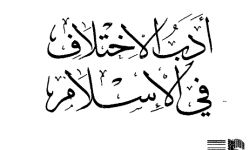 أدَبُ الاِخْتِلَافِ
فِي الإِسْلَامِ